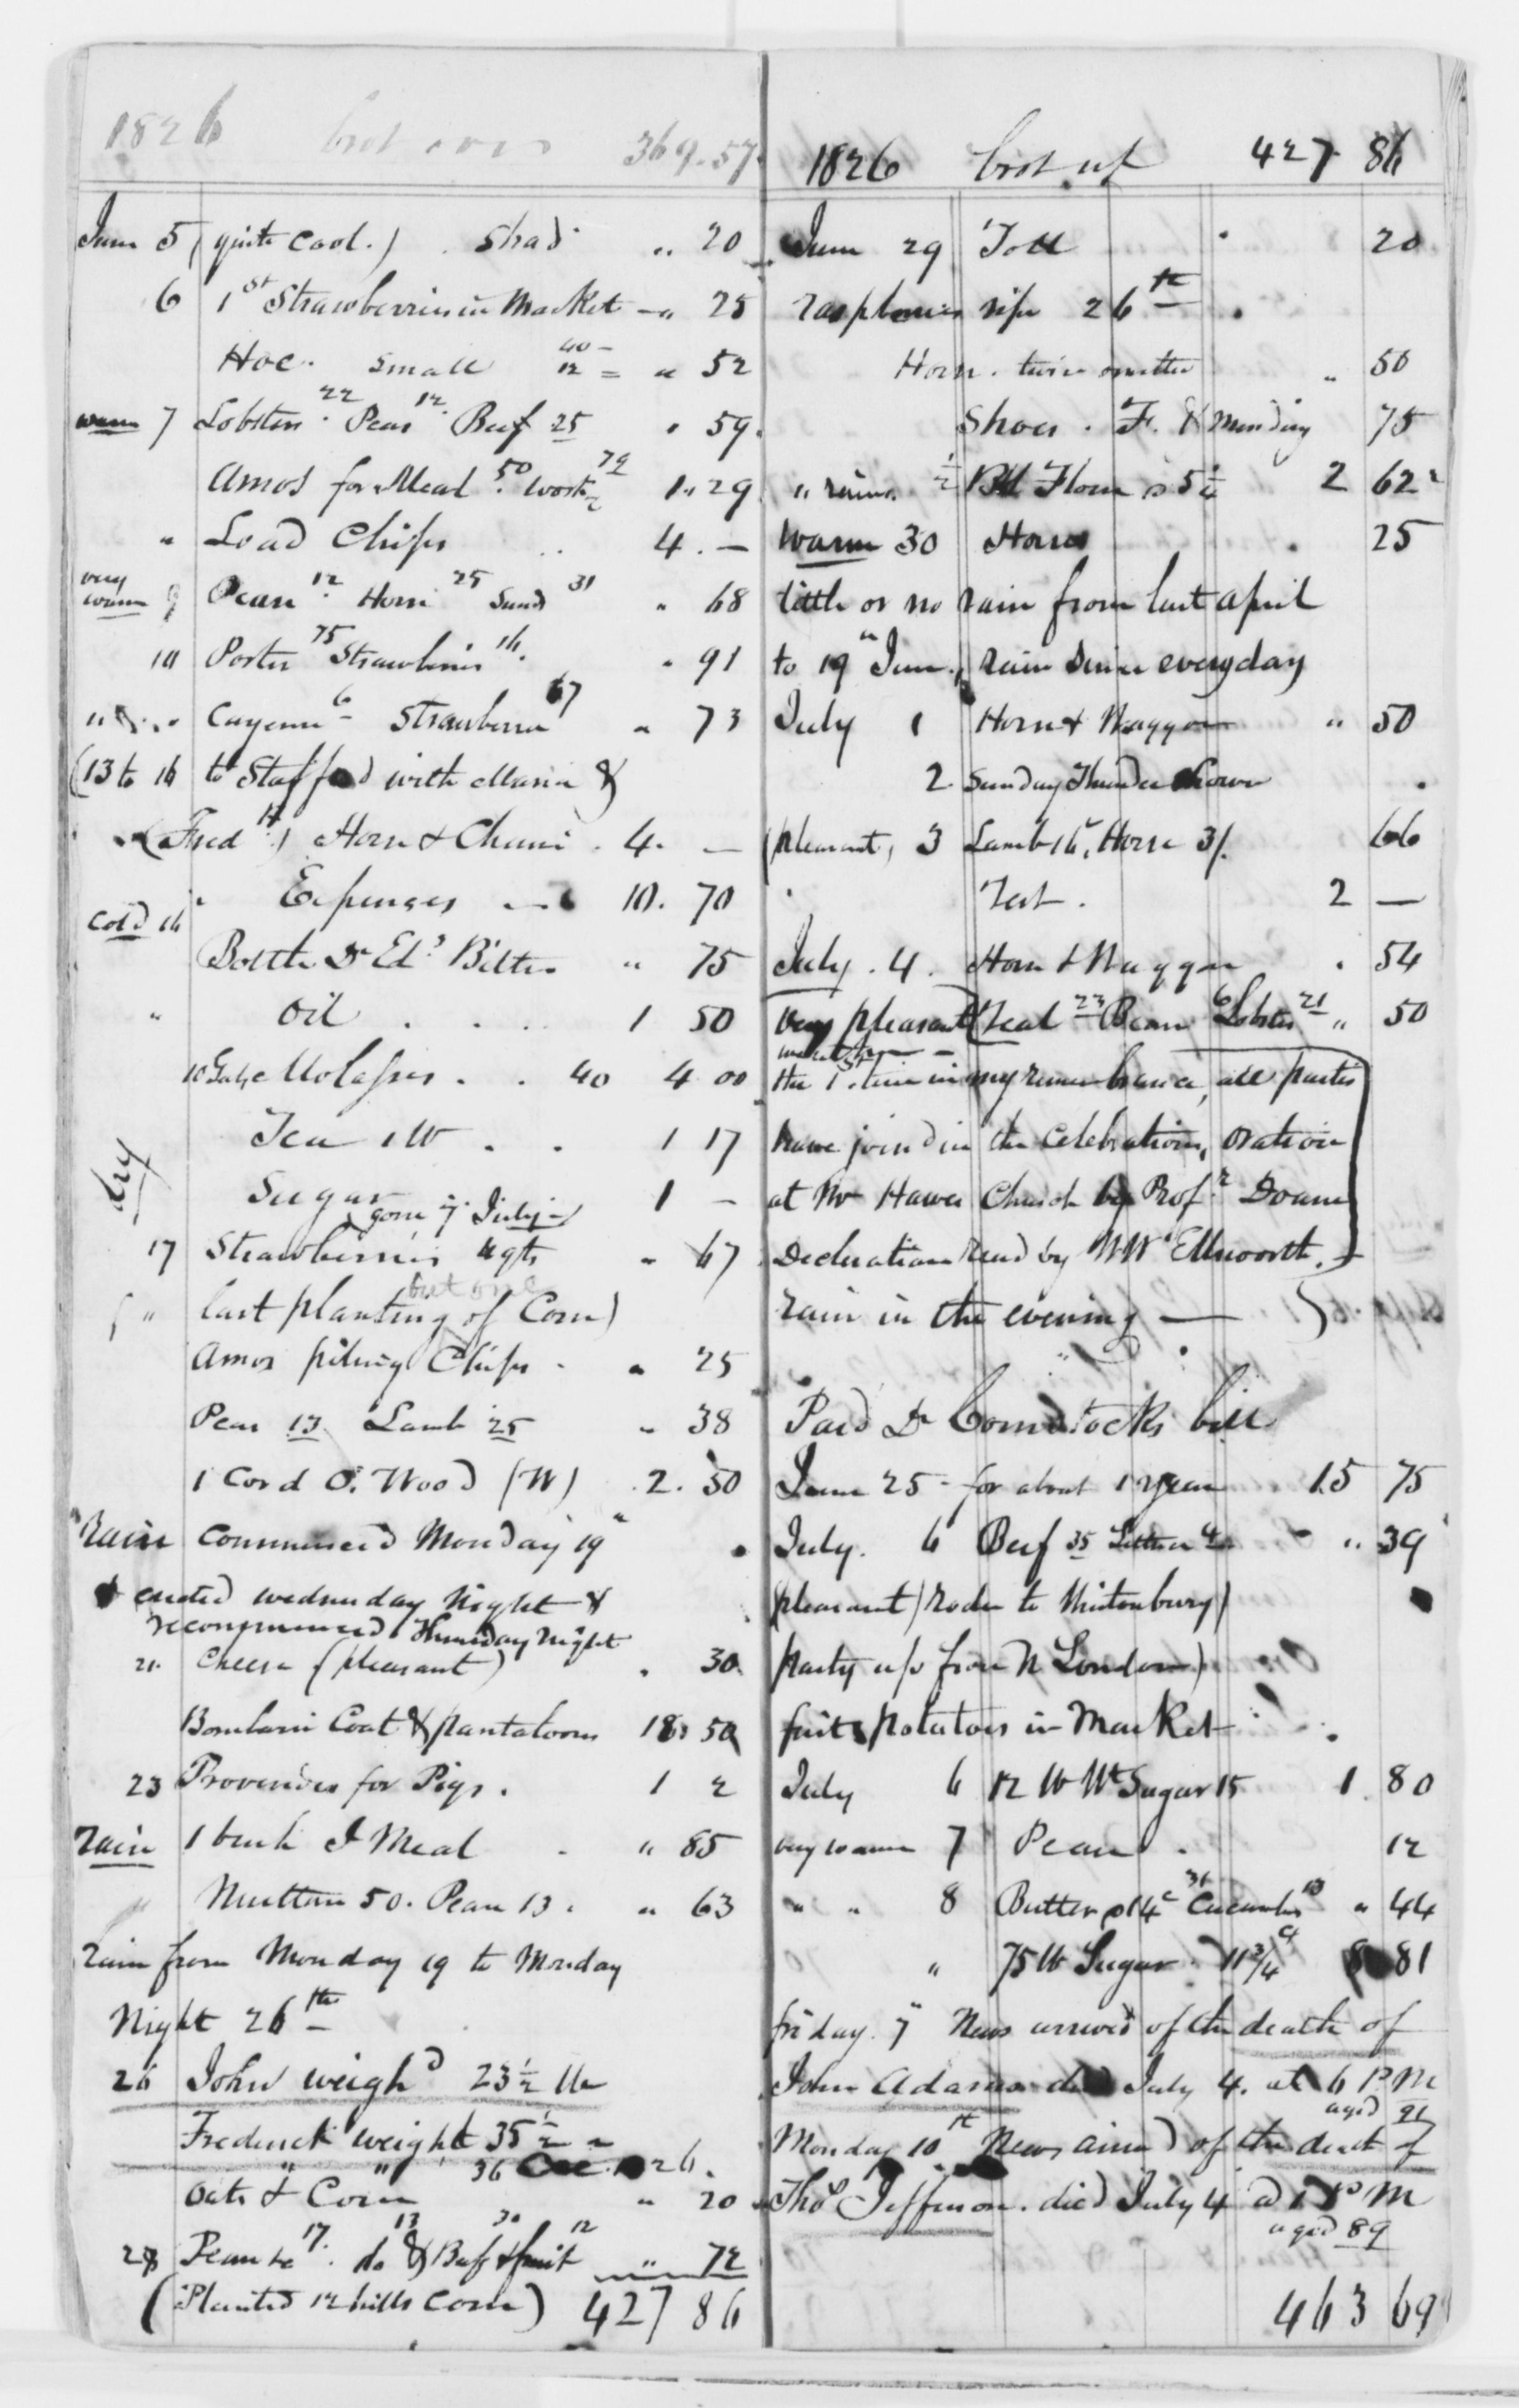 1826 brot over 369.57
June 5 (quite cool.) Shad " 20
6 1st Strawberries in Market " 25
Hoe. small 40 12 = " 52
warm 7 Lobsters 22. Peas 12. Beef 25 " 59.
Amos for Meal 50. work 79 1.29
" Load Chips 4. —
very warm 9 Peas 12. Horse 25 Sund 31 " 68
10 Porter 75 Strawberries 16. " 91
" Cayenne 6 Strawberries 67 " 73
(13 to 16 to Stafford with Maria &
(Fred H) Horse & Chaise. 4. —
" Expenses 10. 70
Cold 16
Bottle Dr Eds Bitters " 75
" Oil 1 50
10 Galls Molasses . . 40 4 00
dry Tea 1 lb . . 1 17
Sugar 1 -
gone 7 July
17 Strawberries 4 qts " 67
but one
(" last planting of Corn)
Amos piling Chips " 25
Peas 13 Lamb 25 " 38
1 Cord O. Wood (W) 2. 50
Rain commenced Monday 19"
& ended wednesday Night &
recommenced Thursday night
21. Cheese (pleasant) . 30
Bombazin Coat & pantaloons 18. 50
23 Provender for Pigs. 1 2
rain 1 bush I Meal " 85
" Mutton 50. Peas 13. " 63
rain from Monday 19 to Monday
Night 26th
26 John weighd 23½ lb
Frederick weight 35½ "
" " 36 26.
Oats & Corn " 20
28 Peas 17. do 13 & Beef 30 & fruit 12 " 72
(Planted 12 hills Corn) 427 86
1826 brot up 427 86
June 29 Toll 20
raspberries ripe 26th
Horse. " 50
Shoes. F. & Mending 75
" rains. ½ Bbl Flour @ 5¼ 2 62
warm 30 Horse . 25
little or no rain from last april
to 19" June, rain since everyday
July 1 Horse & Waggon " 50
2. Sunday Thunder Shower
(pleasant) 3 Lamb 16, Horse 3/. 66
Test. 2 —
July. 4. Horse & Waggon . 54
very pleasant (Veal 23 Beans 6 Lobster 21 " 50
the 1st time in my remembrance, all parties
have joind in the Celebration, oration
at Mr Hawes Church by Profr Doane
Declaration read by W W Ellsworth.
rain in the evening —
Paid Dr Comstocks bill
June 25 - for about 1 year 15 75
July. 6 Beef 35 Lettuce 4 " 39
(pleasant) rode to Wintonbury)
party up from N London)
first potatoes in Market
July 6 12 lb Wt Sugar 15 1. 80
very warm 7 Peas . 12
" " 8 Butter @ 14c 31 Cucumbers 13 " 44
" 75 lb Sugar. 11¾ c 8 81
friday. 7" News arrived of the death of
John Adams died July 4. at 6 P.M
aged 91
Monday 10th News arrived of the death of
Thos Jefferson. died July 4 @ 1 P M
aged 89
463 69